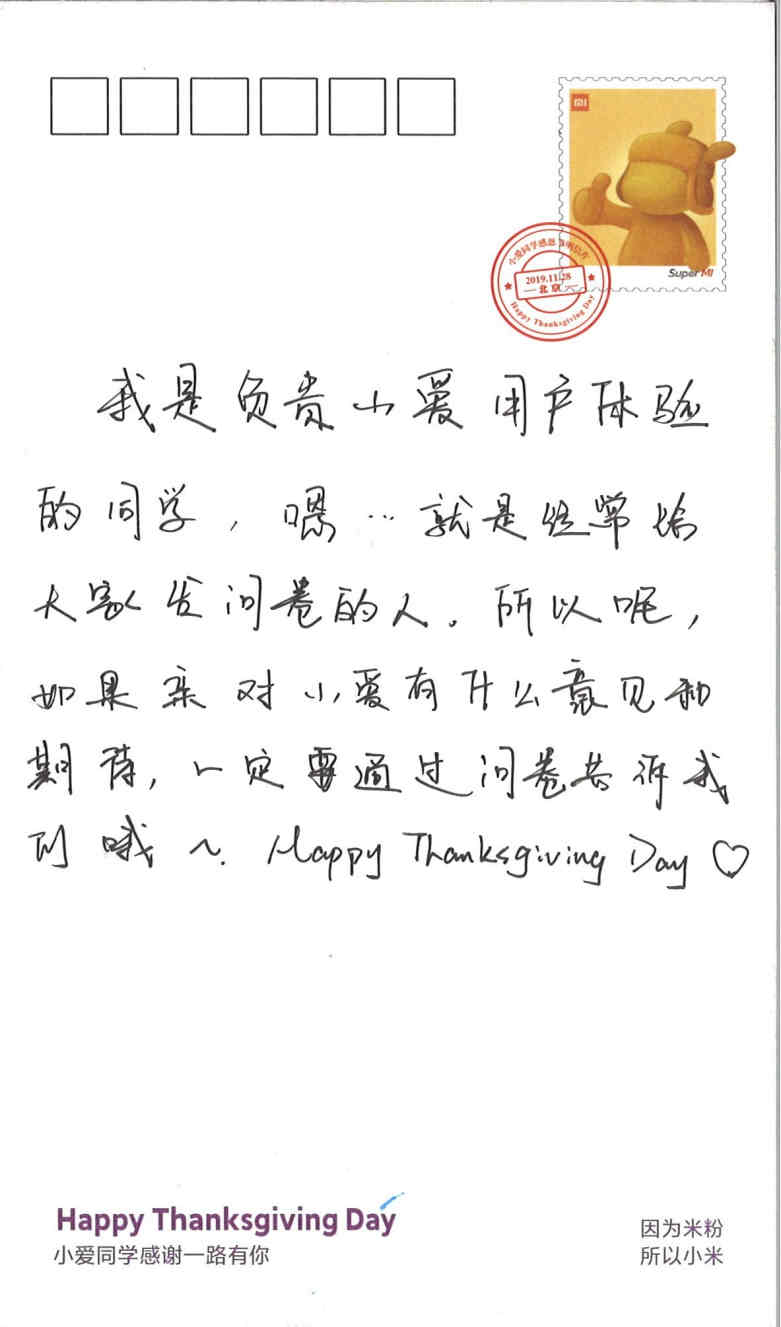 MI
Super MI
2019.11.28
北京
Happy Thanksgiving Day
我是负责小爱用户体验
的同学，嗯…就是经常给
大家发问卷的人。所以呢，
如果亲对小爱有什么意见和
期待，一定要通过问卷告诉我
们哦～. Happy Thanksgiving Day ♡
Happy Thanksgiving Day
小爱同学感谢一路有你
因为米粉
所以小米